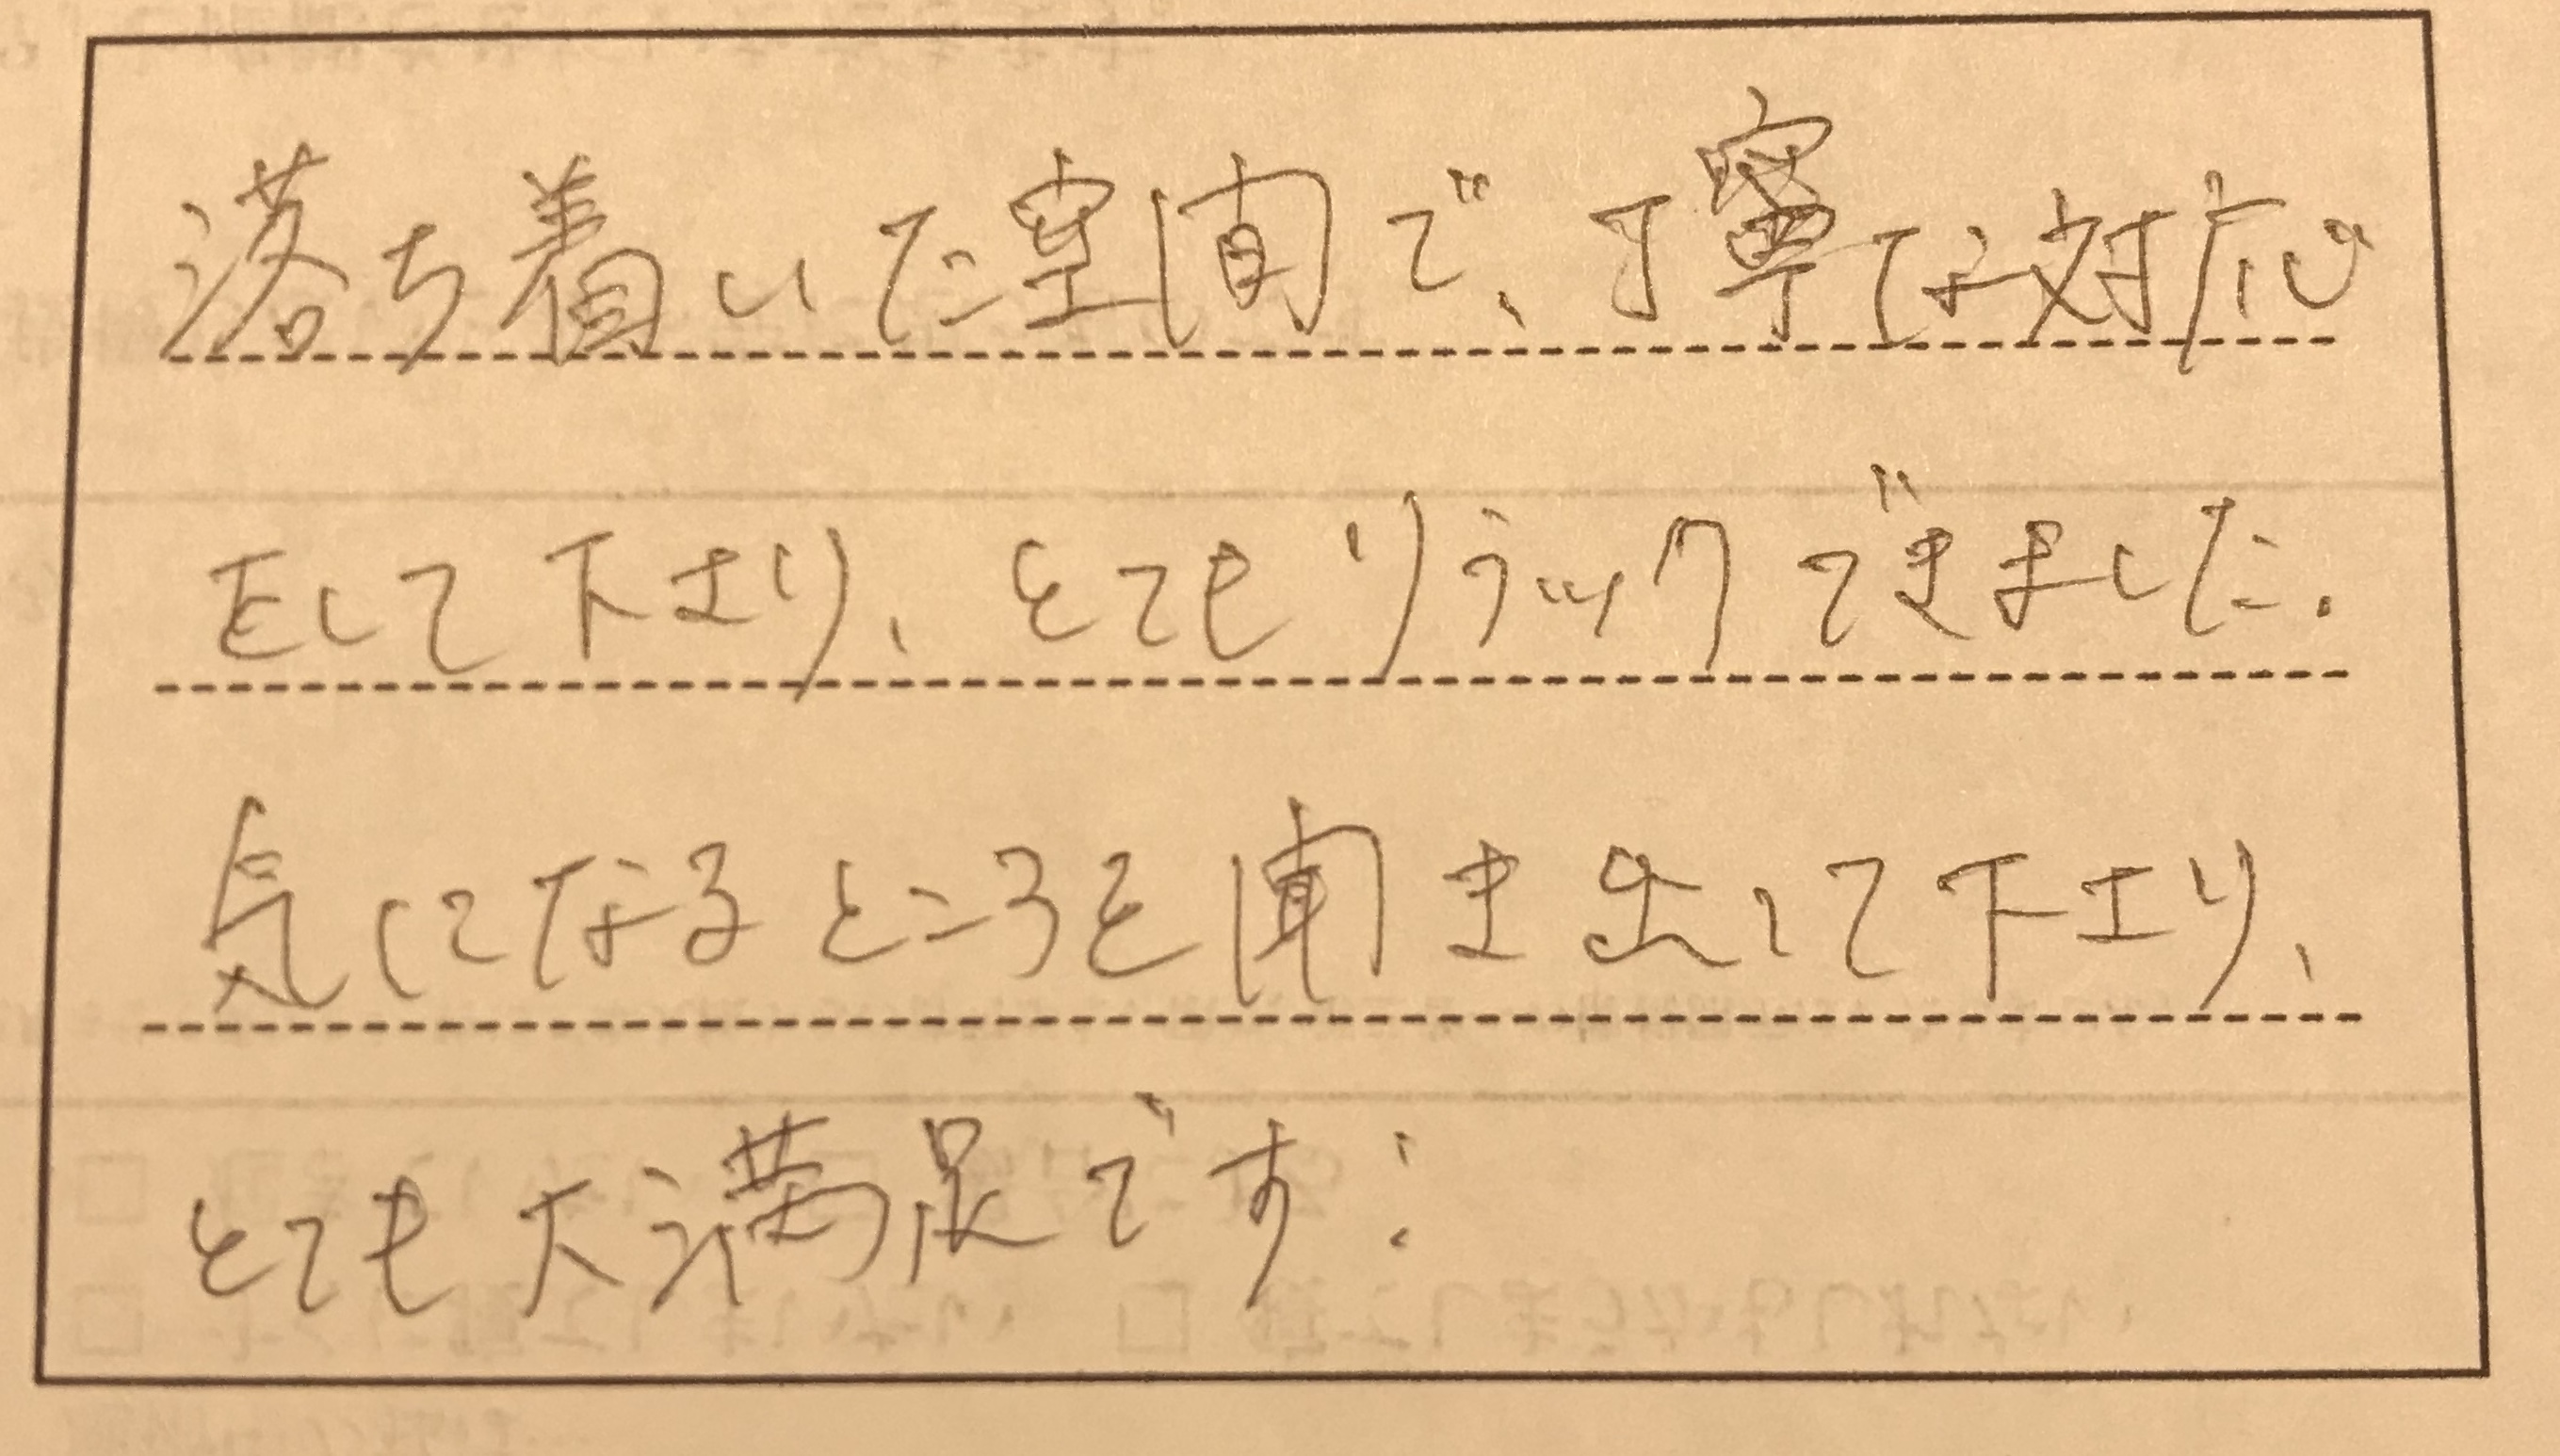 落ち着いた空間で、丁寧な対応
をして下さり、とてもリラックできました.
気になるところを聞き出して下さり、
とても大満足です!